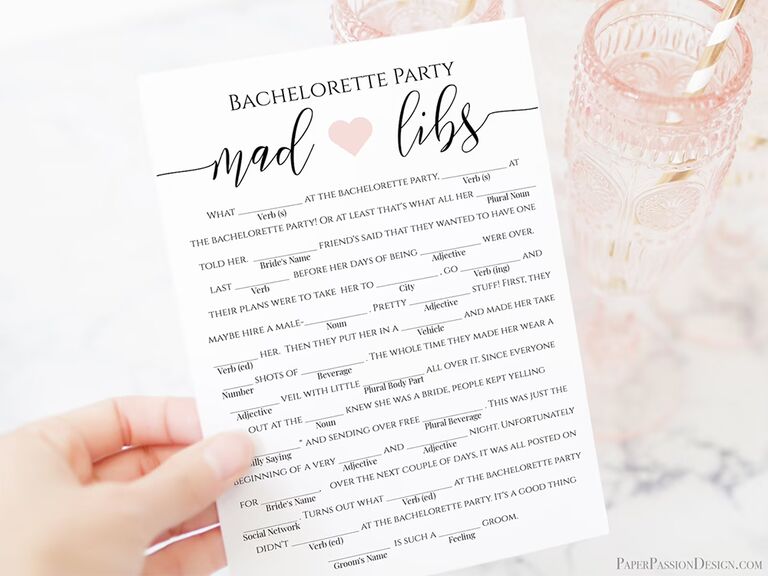 Bachelorette Party
mad libs
What ________ at the bachelorette party, ________ at
Verb (s) Verb (s)
the bachelorette party! Or at least that's what all her ________
Plural Noun
told her. ________ friend's said that they wanted to have one
Bride's Name
last ________ before her days of being ________ were over.
Verb Adjective
their plans were to take her to ________, go ________ and
City Verb (ing)
maybe hire a male-________. Pretty ________ stuff! First, they
Noun Adjective
________ her. Then they put her in a ________ and made her take
Verb (ed) Vehicle
________ shots of ________. The whole time they made her wear a
Number Beverage
________ veil with little ________ all over it. Since everyone
Adjective Plural Body Part
out at the ________ knew she was a bride, people kept yelling
Noun
________" and sending over free ________. This was just the
illy Saying Plural Beverage
beginning of a very ________ and ________ night. Unfortunately
Adjective Adjective
for ________, over the next couple of days, it was all posted on
Bride's Name
________. Turns out what ________ at the bachelorette party
Social Network Verb (ed)
didn't ________ at the bachelorette party. It's a good thing
Verb (ed)
________ is such a ________ groom.
Groom's Name Feeling
PaperPassionDesign.com